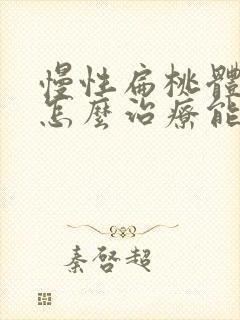 慢性扁桃體
怎麼治療能
秦啓超